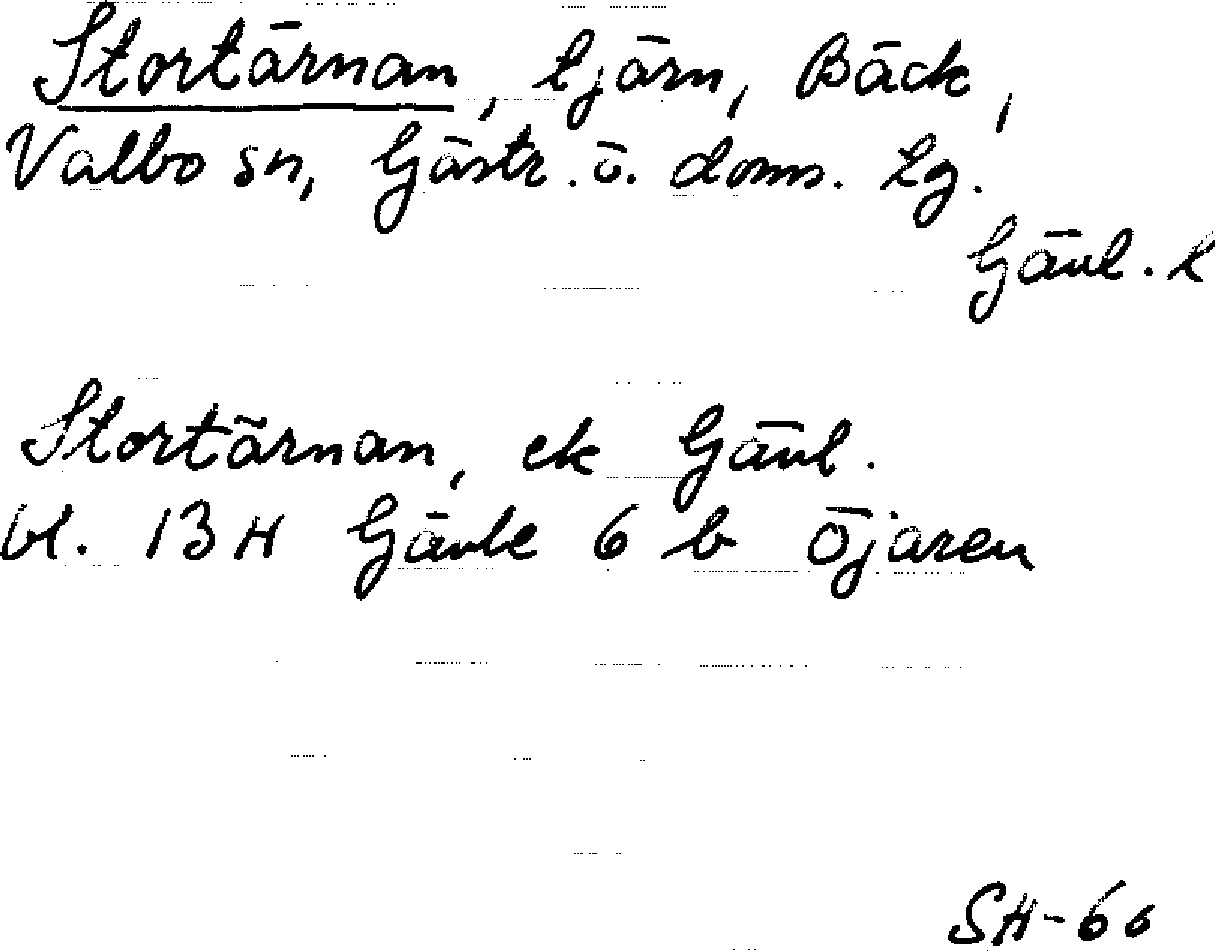 Stortärnan, tjärn, Bäck,
Valbo sn, Gästr. ö. doms. tg.
Gävl. l
Stortärnan, ek Gävl.
bl. 13H Gävle 6 b Öjaren
SH-66